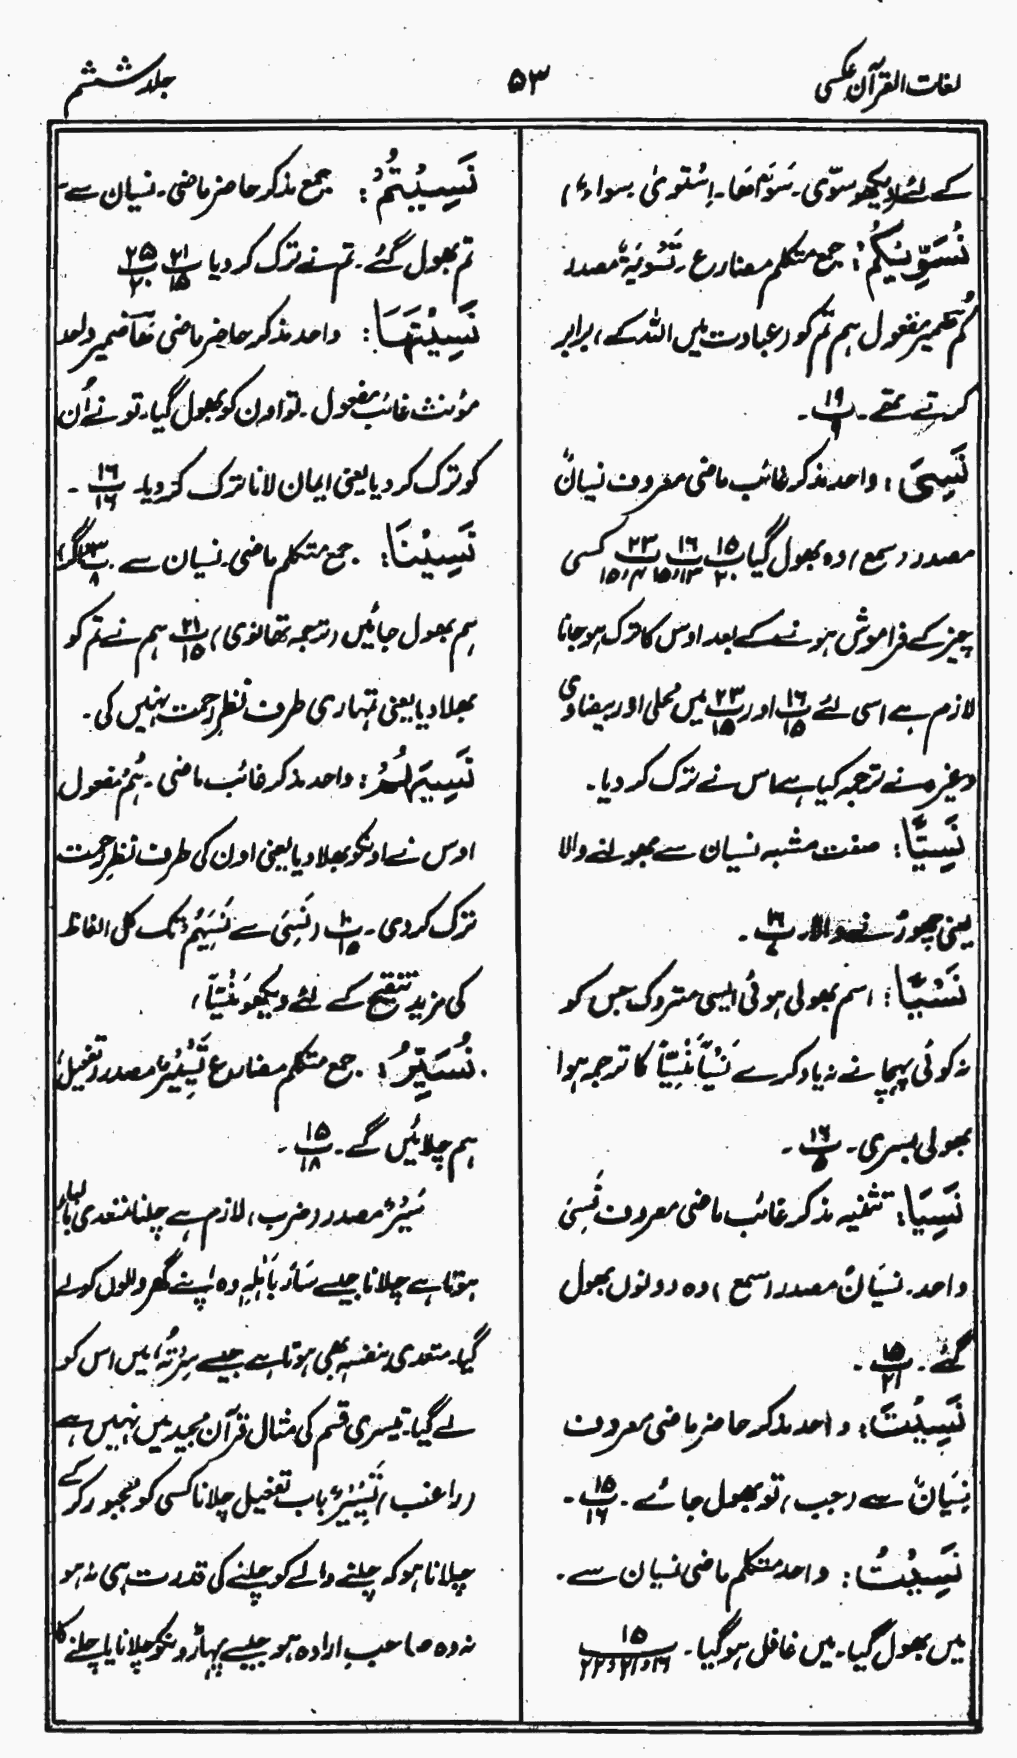 لغات القرآن عکسی
۵۳
جلد ششم
کے لئے دیکھو سوّٰی۔ سَوَّیٰہَا۔ اِسْتَویٰ۔ سواء)
نُسَوِّیْکُمْ: جمع متکلم مضارع۔ تَسْوِیَۃٌ مصدر
کُمْ ضمیر مفعول ہم تم کو (عبادت میں اللہ کے) برابر
کرتے تھے۔ ۱۹/۹۔
نَسِیَ: واحد مذکر غائب ماضی معروف نسیانٌ
مصدر (سمع) وہ بھول گیا ۱۵/۲۰ ۱۶/۱۵،۱۳ ۲۳/۱۵،۷ کسی
چیز کے فراموش ہونے کے بعد اوس کا ترک ہو جانا
لازم ہے اسی لئے ۱۶/۱۵ اور ۲۳/۱۵ میں محلی اور بیضاوی
وغیرہ نے ترجمہ کیا ہے اس نے ترک کر دیا۔
نَسِیًّا: صفت مشبہ نسیان سے بھولنے والا
یعنی چھوڑنے والا۔ ۱۶/۷۔
نَسْیًا: اسم بھولی ہوئی ایسی متروک جس کو
نہ کوئی پہچانے نہ یاد کرے نَسْیًا مَّنْسِیًّا کا ترجمہ ہوا
بھولی بسری۔ ۱۶/۵۔
نَسِیَا: تثنیہ مذکر غائب ماضی معروف نَسِیَ
واحد۔ نسیَانٌ مصدر (سمع) وہ دونوں بھول
گئے۔ ۱۵/۲۱۔
نَسِیْتَ: واحد مذکر حاضر ماضی معروف
نِسْیَانٌ سے (جب) تو بھول جائے۔ ۱۵/۱۶۔
نَسِیْتُ: واحد متکلم ماضی نسیان سے۔
میں بھول گیا۔ میں غافل ہو گیا۔ ۱۵/۱۶،۲۱،۲۲
نَسِیْتُمْ: جمع مذکر حاضر ماضی۔ نسیان سے
تم بھول گئے۔ تم نے ترک کر دیا ۲۱/۱۵ ۲۵/۲۰
نَسِیْتَہَا: واحد مذکر حاضر ماضی ھَا ضمیر واحد
مؤنث غائب مفعول۔ تو اون کو بھول گیا۔ تو نے اُن
کو ترک کر دیا یعنی ایمان لانا ترک کر دیا۔ ۱۶/۱۶۔
نَسِیْنَا: جمع متکلم ماضی۔ نسیان سے ۳/۸ (اگر)
ہم بھول جائیں (ترجمہ تھانوی) ۲۱/۱۵ ہم نے تم کو
بھلا دیا یعنی تمہاری طرف نظرِ رحمت نہیں کی۔
نَسِیَہُمْ: واحد مذکر غائب ماضی۔ ہُمْ مفعول
اوس نے اونکو بھلا دیا یعنی اون کی طرف نظرِ رحمت
ترک کر دی۔ ۱۰/۱۵ (نَسِیَ سے نَسِیَہُمْ تک کل الفاظ
کی مزید تنقیح کے لئے دیکھو مَنْسِیًّا)
نُسَیِّرُ: جمع متکلم مضارع تَسْیِیْرٌ مصدر (تفعیل)
ہم چلائیں گے۔ ۱۵/۱۸۔
سَیْرٌ مصدر (ضرب) لازم ہے چلنا متعدی بالباء
ہوتا ہے چلانا جیسے سَارَ بِاَہْلِہٖ وہ اپنے گھر والوں کو لے
گیا۔ متعدی بنفسہ بھی ہوتا ہے جیسے سِرْتُہٗ، میں اس کو
لے گیا۔ تیسری قسم کی مثال قرآن مجید میں نہیں ہے
(راغب) تَسْیِیْرٌ باب تفعیل چلانا کسی کو مجبور کر کے
چلانا ہو کہ چلنے والے کو چلنے کی قدرت ہی نہ ہو
نہ وہ صاحب ارادہ ہو جیسے پہاڑونکو چلانا یا چلنے کا